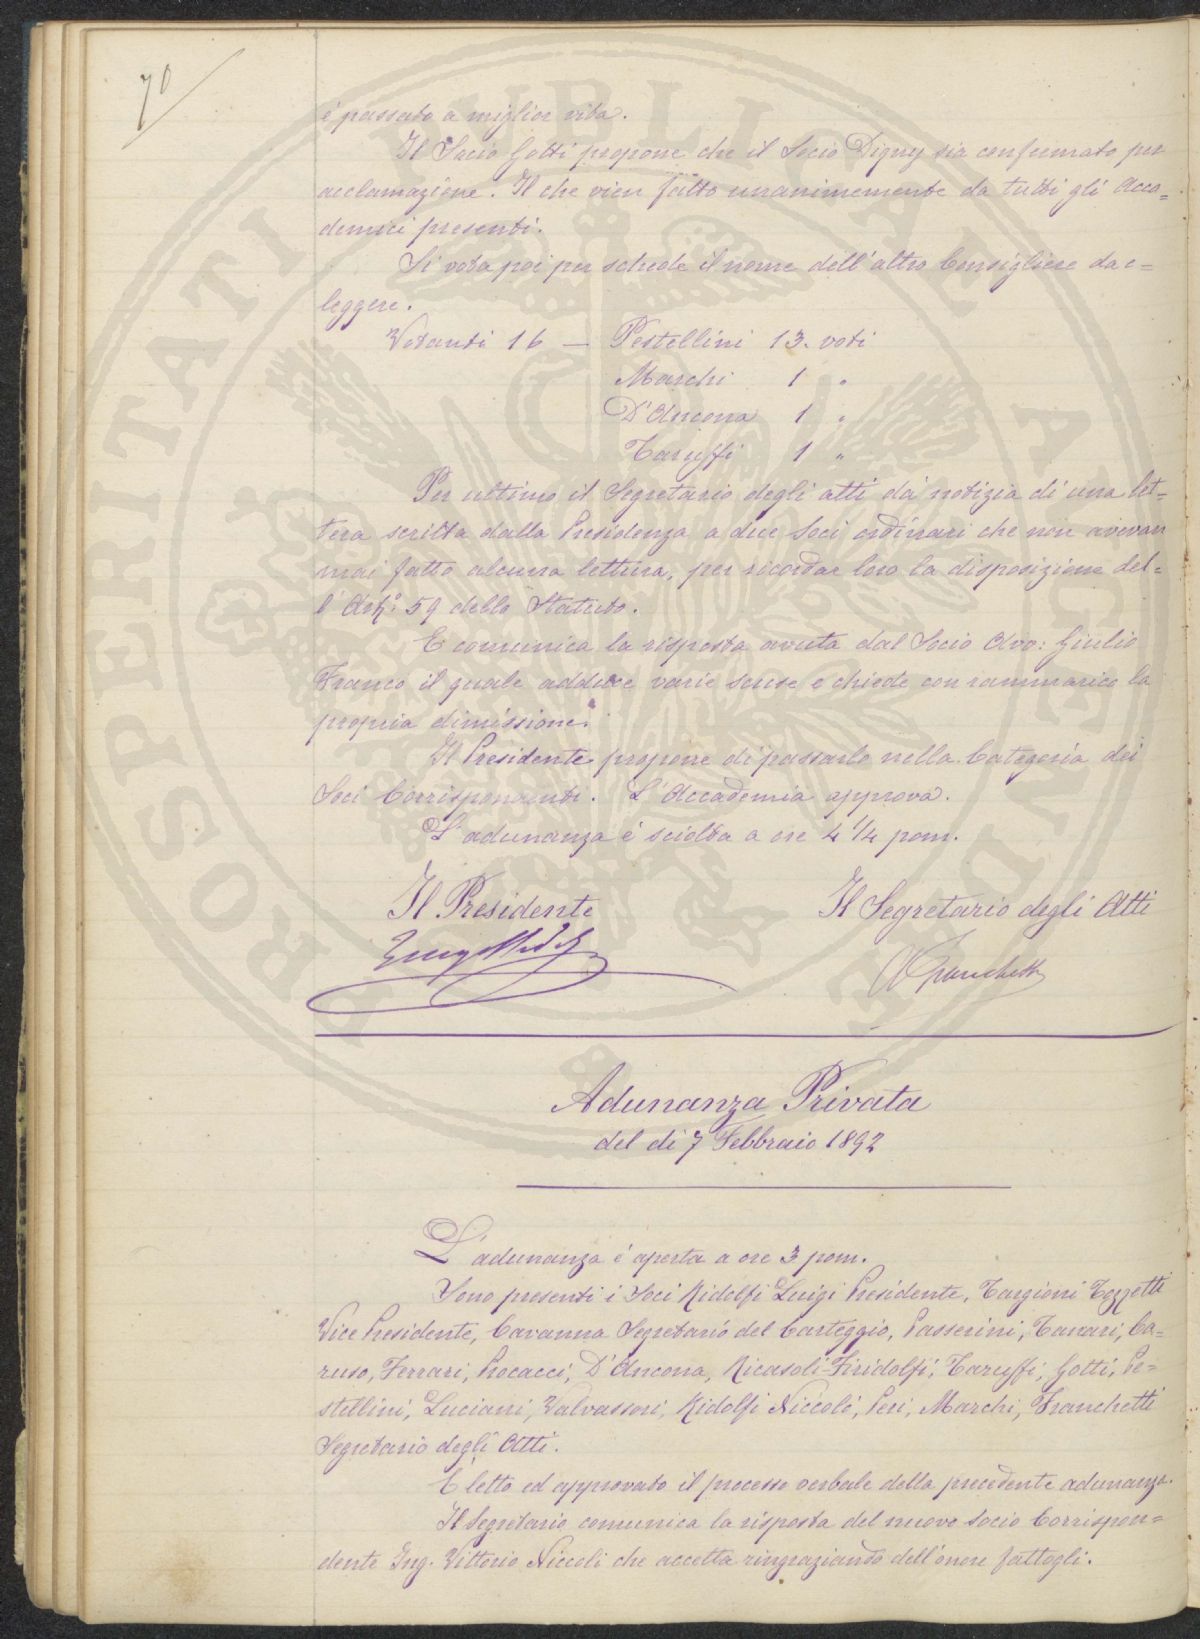 70
è passato a miglior vita.
Il Socio Gotti propone che il Socio Digny sia confermato per
acclamazione. Il che vien fatto unanimemente da tutti gli Acca=
demici presenti.
Si vota poi per schede il nome dell'altro Consigliere da e=
leggere.
Votanti 16 — Pestellini 13. voti
Marchi 1 "
D'Ancona 1 "
Taruffi 1 "
Per ultimo il Segretario degli atti dà notizia di una let=
tera scritta dalla Presidenza a due Soci ordinari che non avevan
mai fatto alcuna lettura, per ricordar loro la disposizione del=
l'Art.º 59 dello Statuto.
E comunica la risposta avuta dal Socio Avv: Giulio
Franco il quale adduce varie scuse e chiede con rammarico la
propria dimissione.
Il Presidente propone di passarlo nella Categoria dei
Soci Corrispondenti. L'Accademia approva.
L'adunanza è sciolta a ore 4 1/4 pom.
Il Presidente Il Segretario degli Atti
A Franchetti
Adunanza Privata
del dì 7 Febbraio 1892
L'adunanza è aperta a ore 3 pom.
Sono presenti i Soci Ridolfi Luigi Presidente, Targioni Tozzetti
Vice Presidente, Cavanna Segretario del Carteggio, Passerini, Tanari, Ca=
ruso, Ferrari, Procacci, D'Ancona, Ricasoli-Firidolfi, Taruffi, Gotti, Pe=
stellini, Luciani, Valvassori, Ridolfi Niccolò, Peri, Marchi, Franchetti
Segretario degli Atti.
È letto ed approvato il processo verbale della precedente adunanza.
Il Segretario comunica la risposta del nuovo Socio Corrispon=
dente Ing. Vittorio Niccoli che accetta ringraziando dell'onore fattogli.
PROSPERITATI PUBLICAE AUGENDAE